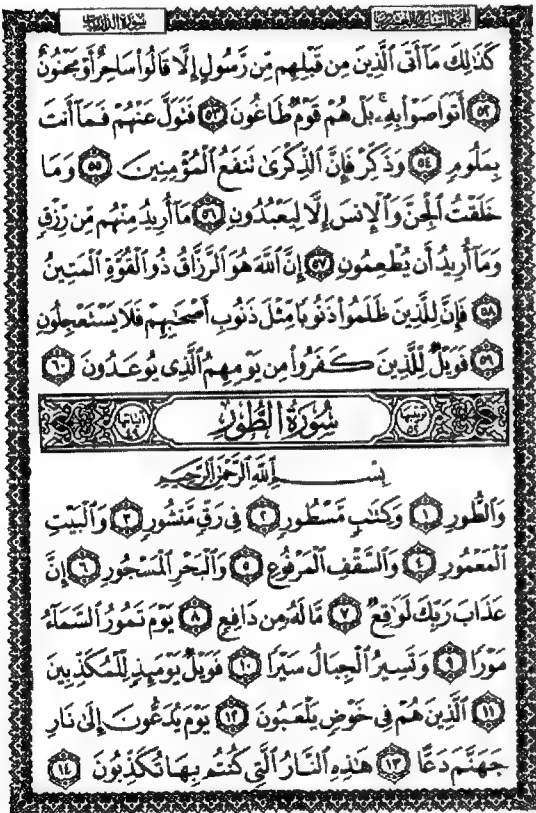 الجزء السابع والعشرون سورة الذاريات
كَذَٰلِكَ مَآ أَتَى الَّذِينَ مِن قَبْلِهِم مِّن رَّسُولٍ إِلَّا قَالُوا۟ سَاحِرٌ أَوْ مَجْنُونٌ
۝٥٢ أَتَوَاصَوْا۟ بِهِۦ ۚ بَلْ هُمْ قَوْمٌ طَاغُونَ ۝٥٣ فَتَوَلَّ عَنْهُمْ فَمَآ أَنتَ
بِمَلُومٍ ۝٥٤ وَذَكِّرْ فَإِنَّ الذِّكْرَىٰ تَنفَعُ الْمُؤْمِنِينَ ۝٥٥ وَمَا
خَلَقْتُ الْجِنَّ وَالْإِنسَ إِلَّا لِيَعْبُدُونِ ۝٥٦ مَآ أُرِيدُ مِنْهُم مِّن رِّزْقٍ
وَمَآ أُرِيدُ أَن يُطْعِمُونِ ۝٥٧ إِنَّ اللَّهَ هُوَ الرَّزَّاقُ ذُو الْقُوَّةِ الْمَتِينُ
۝٥٨ فَإِنَّ لِلَّذِينَ ظَلَمُوا۟ ذَنُوبًا مِّثْلَ ذَنُوبِ أَصْحَٰبِهِمْ فَلَا يَسْتَعْجِلُونِ
۝٥٩ فَوَيْلٌ لِّلَّذِينَ كَفَرُوا۟ مِن يَوْمِهِمُ الَّذِى يُوعَدُونَ ۝٦٠
ترتيبها ٥٢ سُورَةُ الطُّورِ آياتها ٤٩
بِسْمِ اللَّهِ الرَّحْمَٰنِ الرَّحِيمِ
وَالطُّورِ ۝١ وَكِتَٰبٍ مَّسْطُورٍ ۝٢ فِى رَقٍّ مَّنشُورٍ ۝٣ وَالْبَيْتِ
الْمَعْمُورِ ۝٤ وَالسَّقْفِ الْمَرْفُوعِ ۝٥ وَالْبَحْرِ الْمَسْجُورِ ۝٦ إِنَّ
عَذَابَ رَبِّكَ لَوَٰقِعٌ ۝٧ مَّا لَهُۥ مِن دَافِعٍ ۝٨ يَوْمَ تَمُورُ السَّمَآءُ
مَوْرًا ۝٩ وَتَسِيرُ الْجِبَالُ سَيْرًا ۝١٠ فَوَيْلٌ يَوْمَئِذٍ لِّلْمُكَذِّبِينَ
۝١١ الَّذِينَ هُمْ فِى خَوْضٍ يَلْعَبُونَ ۝١٢ يَوْمَ يُدَعُّونَ إِلَىٰ نَارِ
جَهَنَّمَ دَعًّا ۝١٣ هَٰذِهِ النَّارُ الَّتِى كُنتُم بِهَا تُكَذِّبُونَ ۝١٤